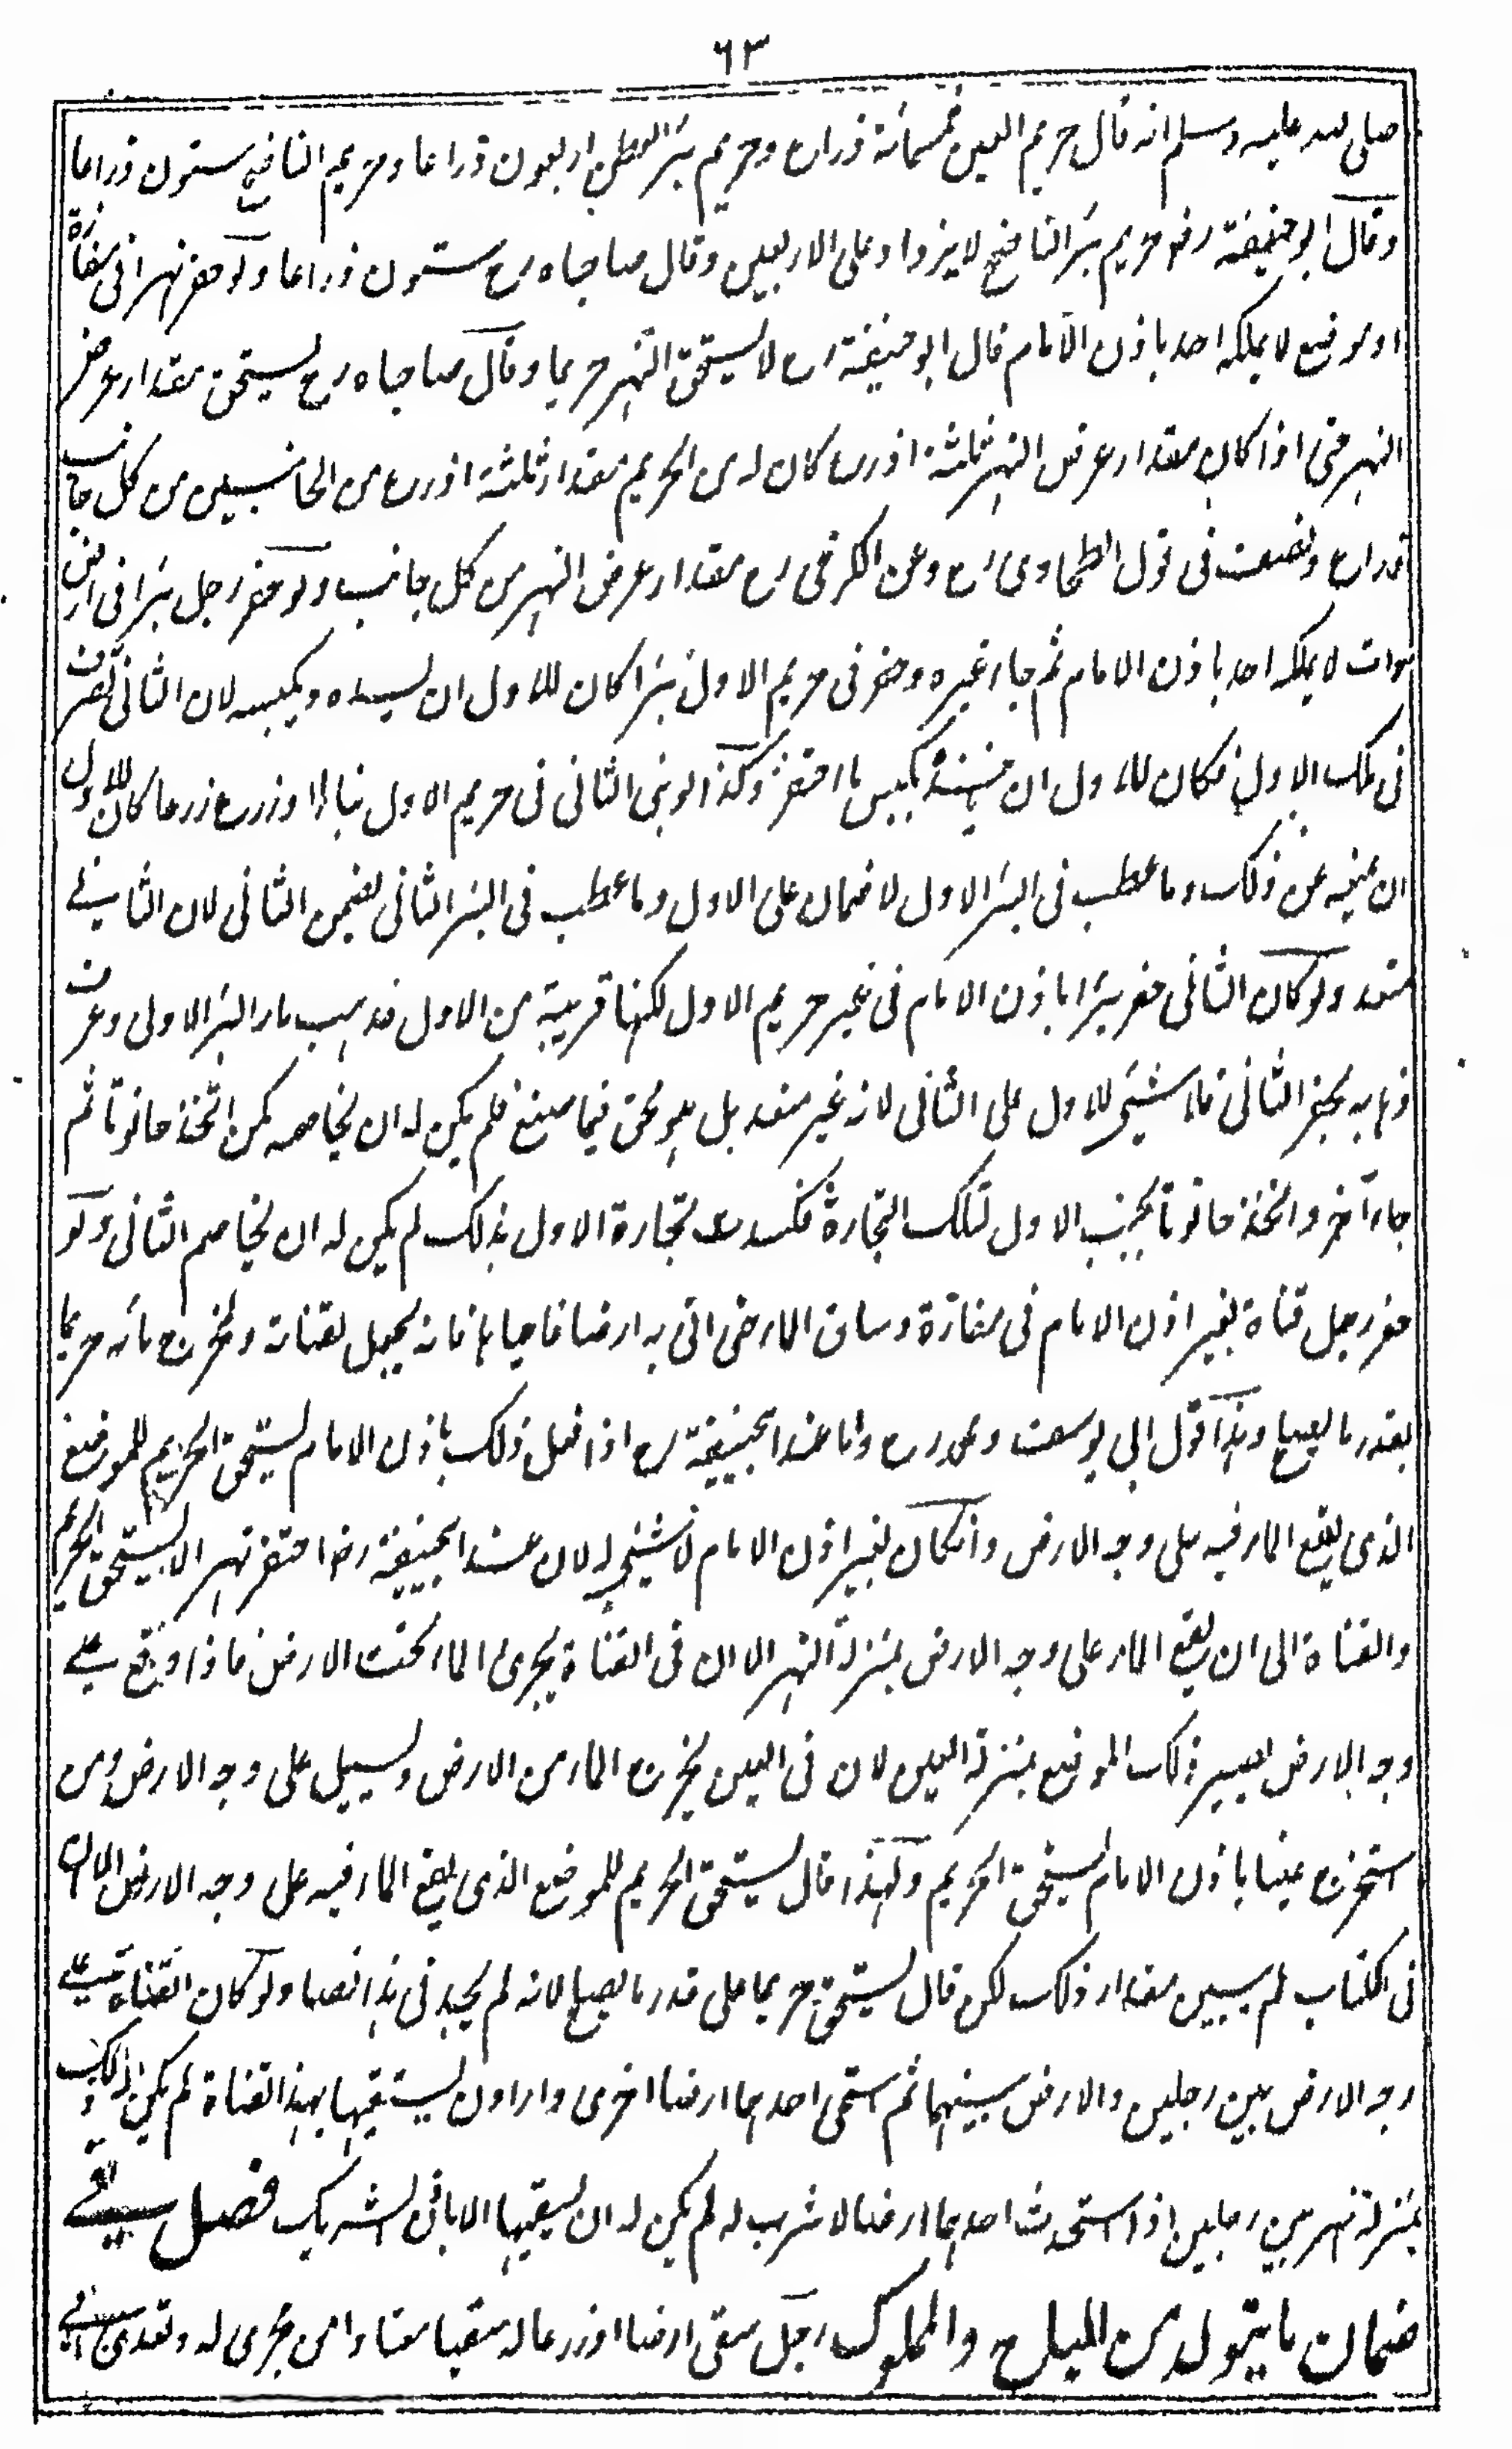 ٦٣
صلى الله عليه وسلم انه قال حريم العين خمسمائة ذراع وحريم بئر العطن اربعون ذراعا وحريم الناضح ستون ذراعا
وقال ابو حنيفة رض حريم بئر الناضح لا يزداد على الاربعين وقال صاحباه رح ستون ذراعا ولو حفر نهرا فى مفازة
او موضع لا يملكه احد باذن الامام قال ابو حنيفة رح لا يستحق النهر حريما وقال صاحباه رح يستحق مقدار عرض
النهر حتى اذا كان مقدار عرض النهر ثلثة اذرع كان له من الحريم مقدار ثلثة اذرع من الجانبين من كل جانب
ذراع ونصف فى قول الطحاوى رح وعن الكرخى رح مقدار عرض النهر من كل جانب ولو حفر رجل بئرا فى ارض
موات لا يملكه احد باذن الامام ثم جاء غيره وحفر فى حريم الاول بئرا كان للاول ان يسده ويكبسه لان الثانى تصرف
فى ملك الاول فكان للاول ان يكبس ما احتفر وكذا لو بنى الثانى فى حريم الاول بناء او زرع زرعا كان للاول
ان يمنعه عن ذلك وما عطب فى البئر الاول لا ضمان على الاول وما عطب فى البئر الثانى يضمن الثانى لان الثانى
متعد ولو كان الثانى حفر بئرا باذن الامام فى غير حريم الاول لكنها قريبة من الاول فذهب ماء البئر الاولى وعرف
ذهابه بحفر الثانى فلا شيئ للاول على الثانى لانه غير متعد بل هو محق فيما صنع فلم يكن له ان يخاصمه كمن اتخذ حانوتا ثم
جاء آخر واتخذ حانوتا بجنب الاول لتلك التجارة فكسدت تجارة الاول بذلك لم يكن له ان يخاصم الثانى ولو
حفر رجل قناة بغير اذن الامام فى مفازة وساق الماء حتى اتى به ارضا فاحياها فانه يجعل لقناته ولمخرج مائه حريما
بقدر ما يصلح وهذا قول ابى يوسف ومحمد رح واما عند ابيحنيفة رح اذا فعل ذلك باذن الامام يستحق الحريم للموضع
الذى يقع الماء فيه على وجه الارض وان كان بغير اذن الامام لا شيئ له لان عند ابيحنيفة رض احتفر نهر الا يستحق الحريم
والقناة الى ان يقع الماء على وجه الارض بمنزلة النهر الا ان فى القناة يجرى الماء تحت الارض فاذا وقع على
وجه الارض يصير ذلك الموضع بمنزلة العين لان فى العين يخرج الماء من الارض ويسيل على وجه الارض ومن
استخرج عينا باذن الامام يستحق الحريم ولهذا قال يستحق الحريم للموضع الذى يقع الماء فيه على وجه الارض الا ان
فى الكتاب لم يبين مقدار ذلك لكن قال يستحق حريما على قدر ما يصلح لانه لم يجد فى هذا نصا ولو كان القناة على
وجه الارض بين رجلين والارض بينهما ثم استحى احدهما ارضا اخرى واراد ان يستقيها بهذا القناة لم يكن له ذلك و
بمنزلة نهر بين رجلين اذا استحدث احدهما ارضا لا شرب له لم يكن له ان يسقيها الا باذن الشريك فصل فى
ضمان ما يتولد من المباح والمملوك رجل سقى ارضا او زرعا له سقيا معتادا من مجرى له وتعدى الى